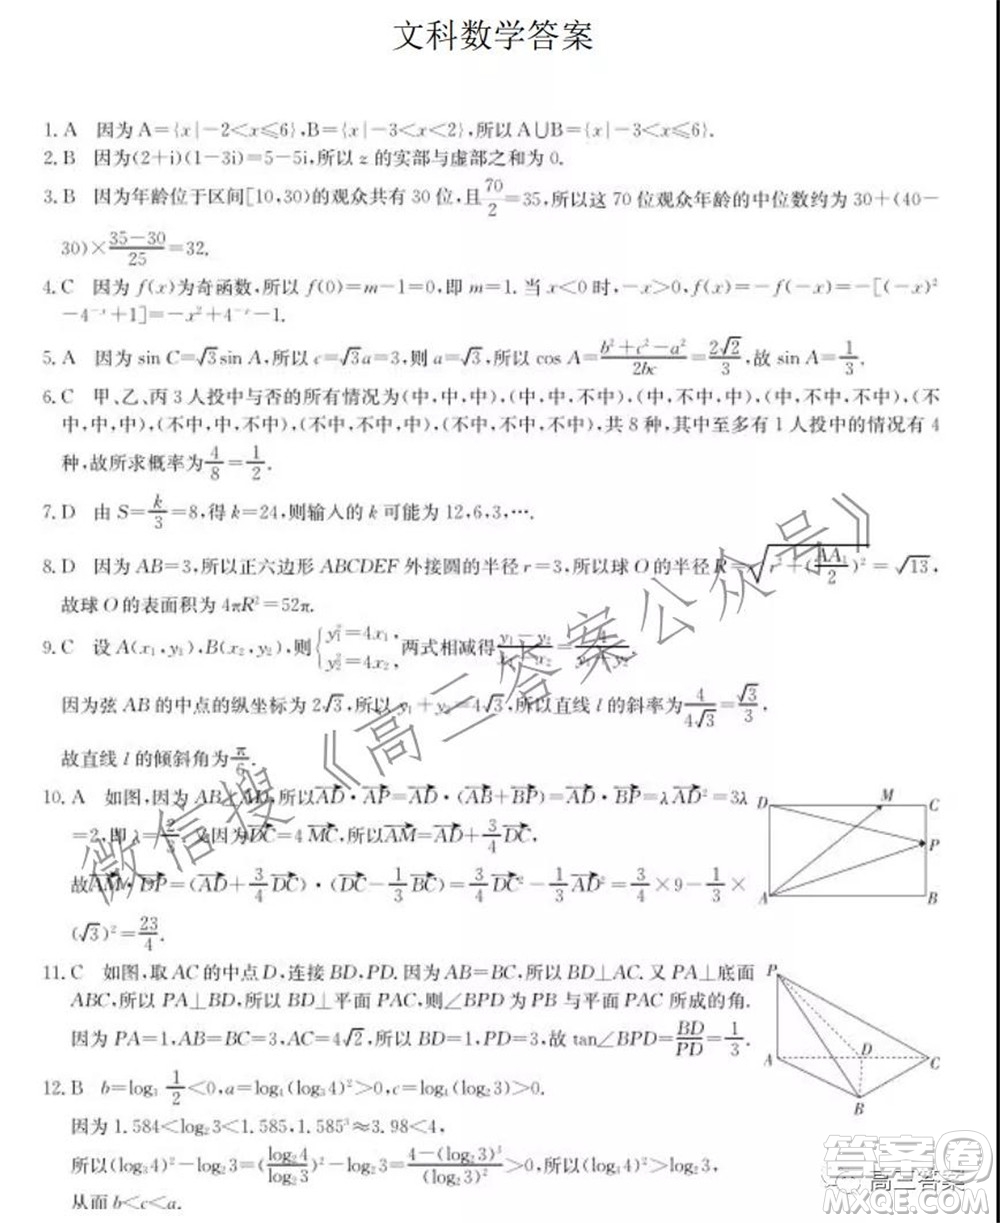 文科数学答案
1. A 因为 A={x|-2<x≤6},B={x|-3<x<2},所以 A∪B={x|-3<x≤6}.
2. B 因为(2+i)(1-3i)=5-5i,所以 z 的实部与虚部之和为 0.
3. B 因为年龄位于区间[10,30)的观众共有 30 位,且70/2=35,所以这 70 位观众年龄的中位数约为 30+(40-
30)×(35-30)/25=32.
4. C 因为 f(x)为奇函数,所以 f(0)=m-1=0,即 m=1. 当 x<0 时,-x>0,f(x)=-f(-x)=-[(-x)²
-4⁻ˣ+1]=-x²+4⁻ˣ-1.
5. A 因为 sin C=√3sin A,所以 c=√3a=3,则 a=√3,所以 cos A=(b²+c²-a²)/2bc=2√2/3,故 sin A=1/3.
6. C 甲、乙、丙 3 人投中与否的所有情况为(中,中,中),(中,中,不中),(中,不中,中),(中,不中,不中),(不
中,中,中),(不中,中,不中),(不中,不中,中),(不中,不中,不中),共 8 种,其中至多有 1 人投中的情况有 4
种,故所求概率为4/8=1/2.
7. D 由 S=k/3=8,得 k=24,则输入的 k 可能为 12,6,3,….
8. D 因为 AB=3,所以正六边形 ABCDEF 外接圆的半径 r=3,所以球 O 的半径 R=√(r²+(AA₁/2)²)=√13,
故球 O 的表面积为 4πR²=52π.
9. C 设 A(x₁,y₁),B(x₂,y₂),则{y₁²=4x₁, y₂²=4x₂,两式相减得(y₁-y₂)/(x₁-x₂)=4/(y₁+y₂).
因为弦 AB 的中点的纵坐标为 2√3,所以 y₁+y₂=4√3,所以直线 l 的斜率为4/4√3=√3/3,
故直线 l 的倾斜角为π/6.
10. A 如图,因为 AB⊥AD,所以AD·AP=AD·(AB+BP)=AD·BP=λAD²=3λ
=2,即 λ=2/3. 又因为DC=4MC,所以AM=AD+3/4DC,
故AM·DP=(AD+3/4DC)·(DC-1/3BC)=3/4DC²-1/3AD²=3/4×9-1/3×
(√3)²=23/4.
D M C
P
A B
11. C 如图,取 AC 的中点 D,连接 BD,PD. 因为 AB=BC,所以 BD⊥AC. 又 PA⊥底面
ABC,所以 PA⊥BD,所以 BD⊥平面 PAC,则∠BPD 为 PB 与平面 PAC 所成的角.
因为 PA=1,AB=BC=3,AC=4√2,所以 BD=1,PD=3,故 tan∠BPD=BD/PD=1/3.
P
A D C
B
12. B b=log₃ 1/2<0,a=log₃(log₃4)²>0,c=log₃(log₂3)>0.
因为 1.584<log₂3<1.585,1.585³≈3.98<4,
所以(log₃4)²-log₂3=(log₂4/log₂3)²-log₂3=(4-(log₂3)³)/(log₂3)²>0,所以(log₃4)²>log₂3,
从而 b<c<a.
微信搜《高三答案公众号》
答案圈
高三答案